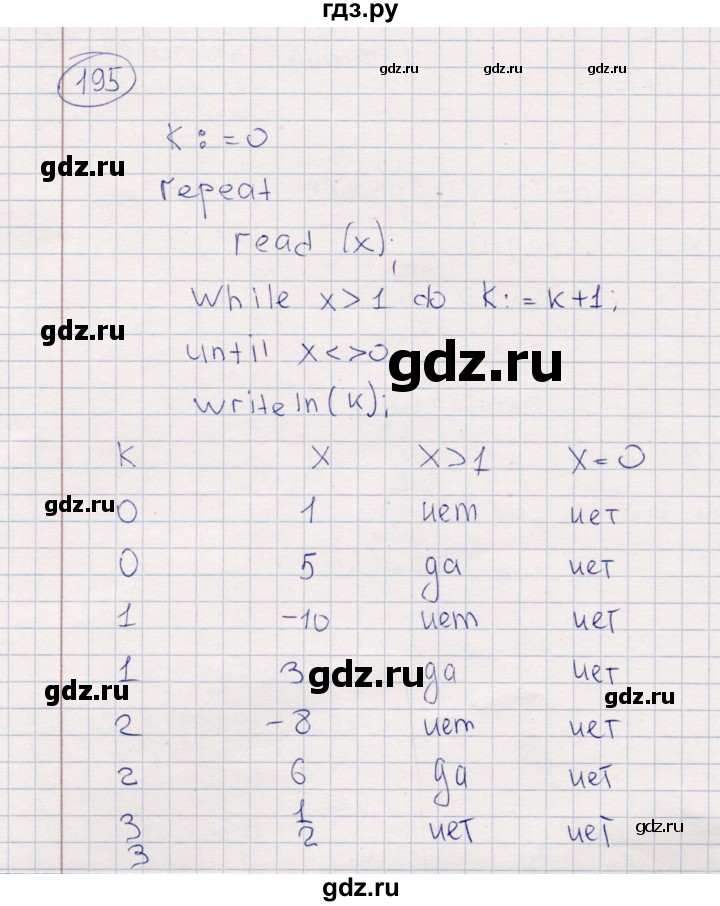 гдз.ру
gdz.ru gdz.ru gdz.ru
195
K:=0
gdz.ru
repeat
read (x);
While x>1 do K:=k+1;
gdz.ru
until x<>0
gdz.ru
writeln(k);
K X X>1 X=0
gdz.ru
0 1 нет нет
gdz.ru
0 5 да нет
gdz.ru
1 -10 нет нет
1 3 да нет
gdz.ru
gdz.ru
gdz.ru
2 -8 нет нет
2 6 да нет
3 1/2 нет нет
gdz.ru
3
gdz.ru